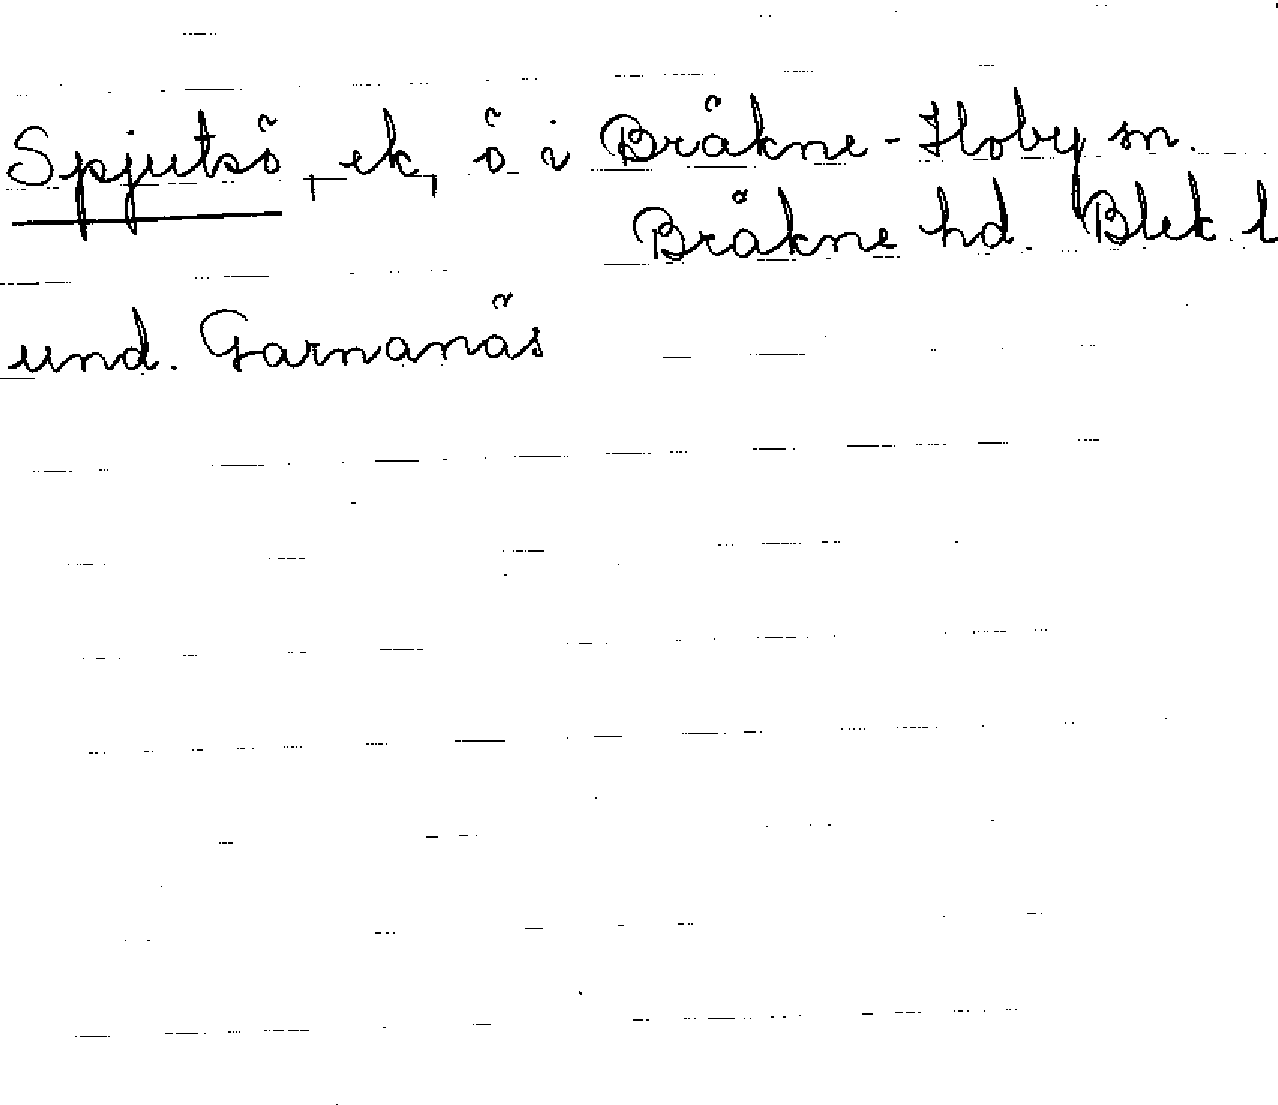 Spjutsö, ek, ö i Bräkne-Hoby sn.
Bräkne hd. Blek. l
und. Garnanäs